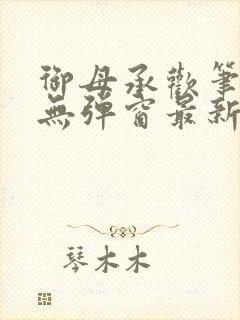 御母承歡筆
無彈窗最新
琴木木